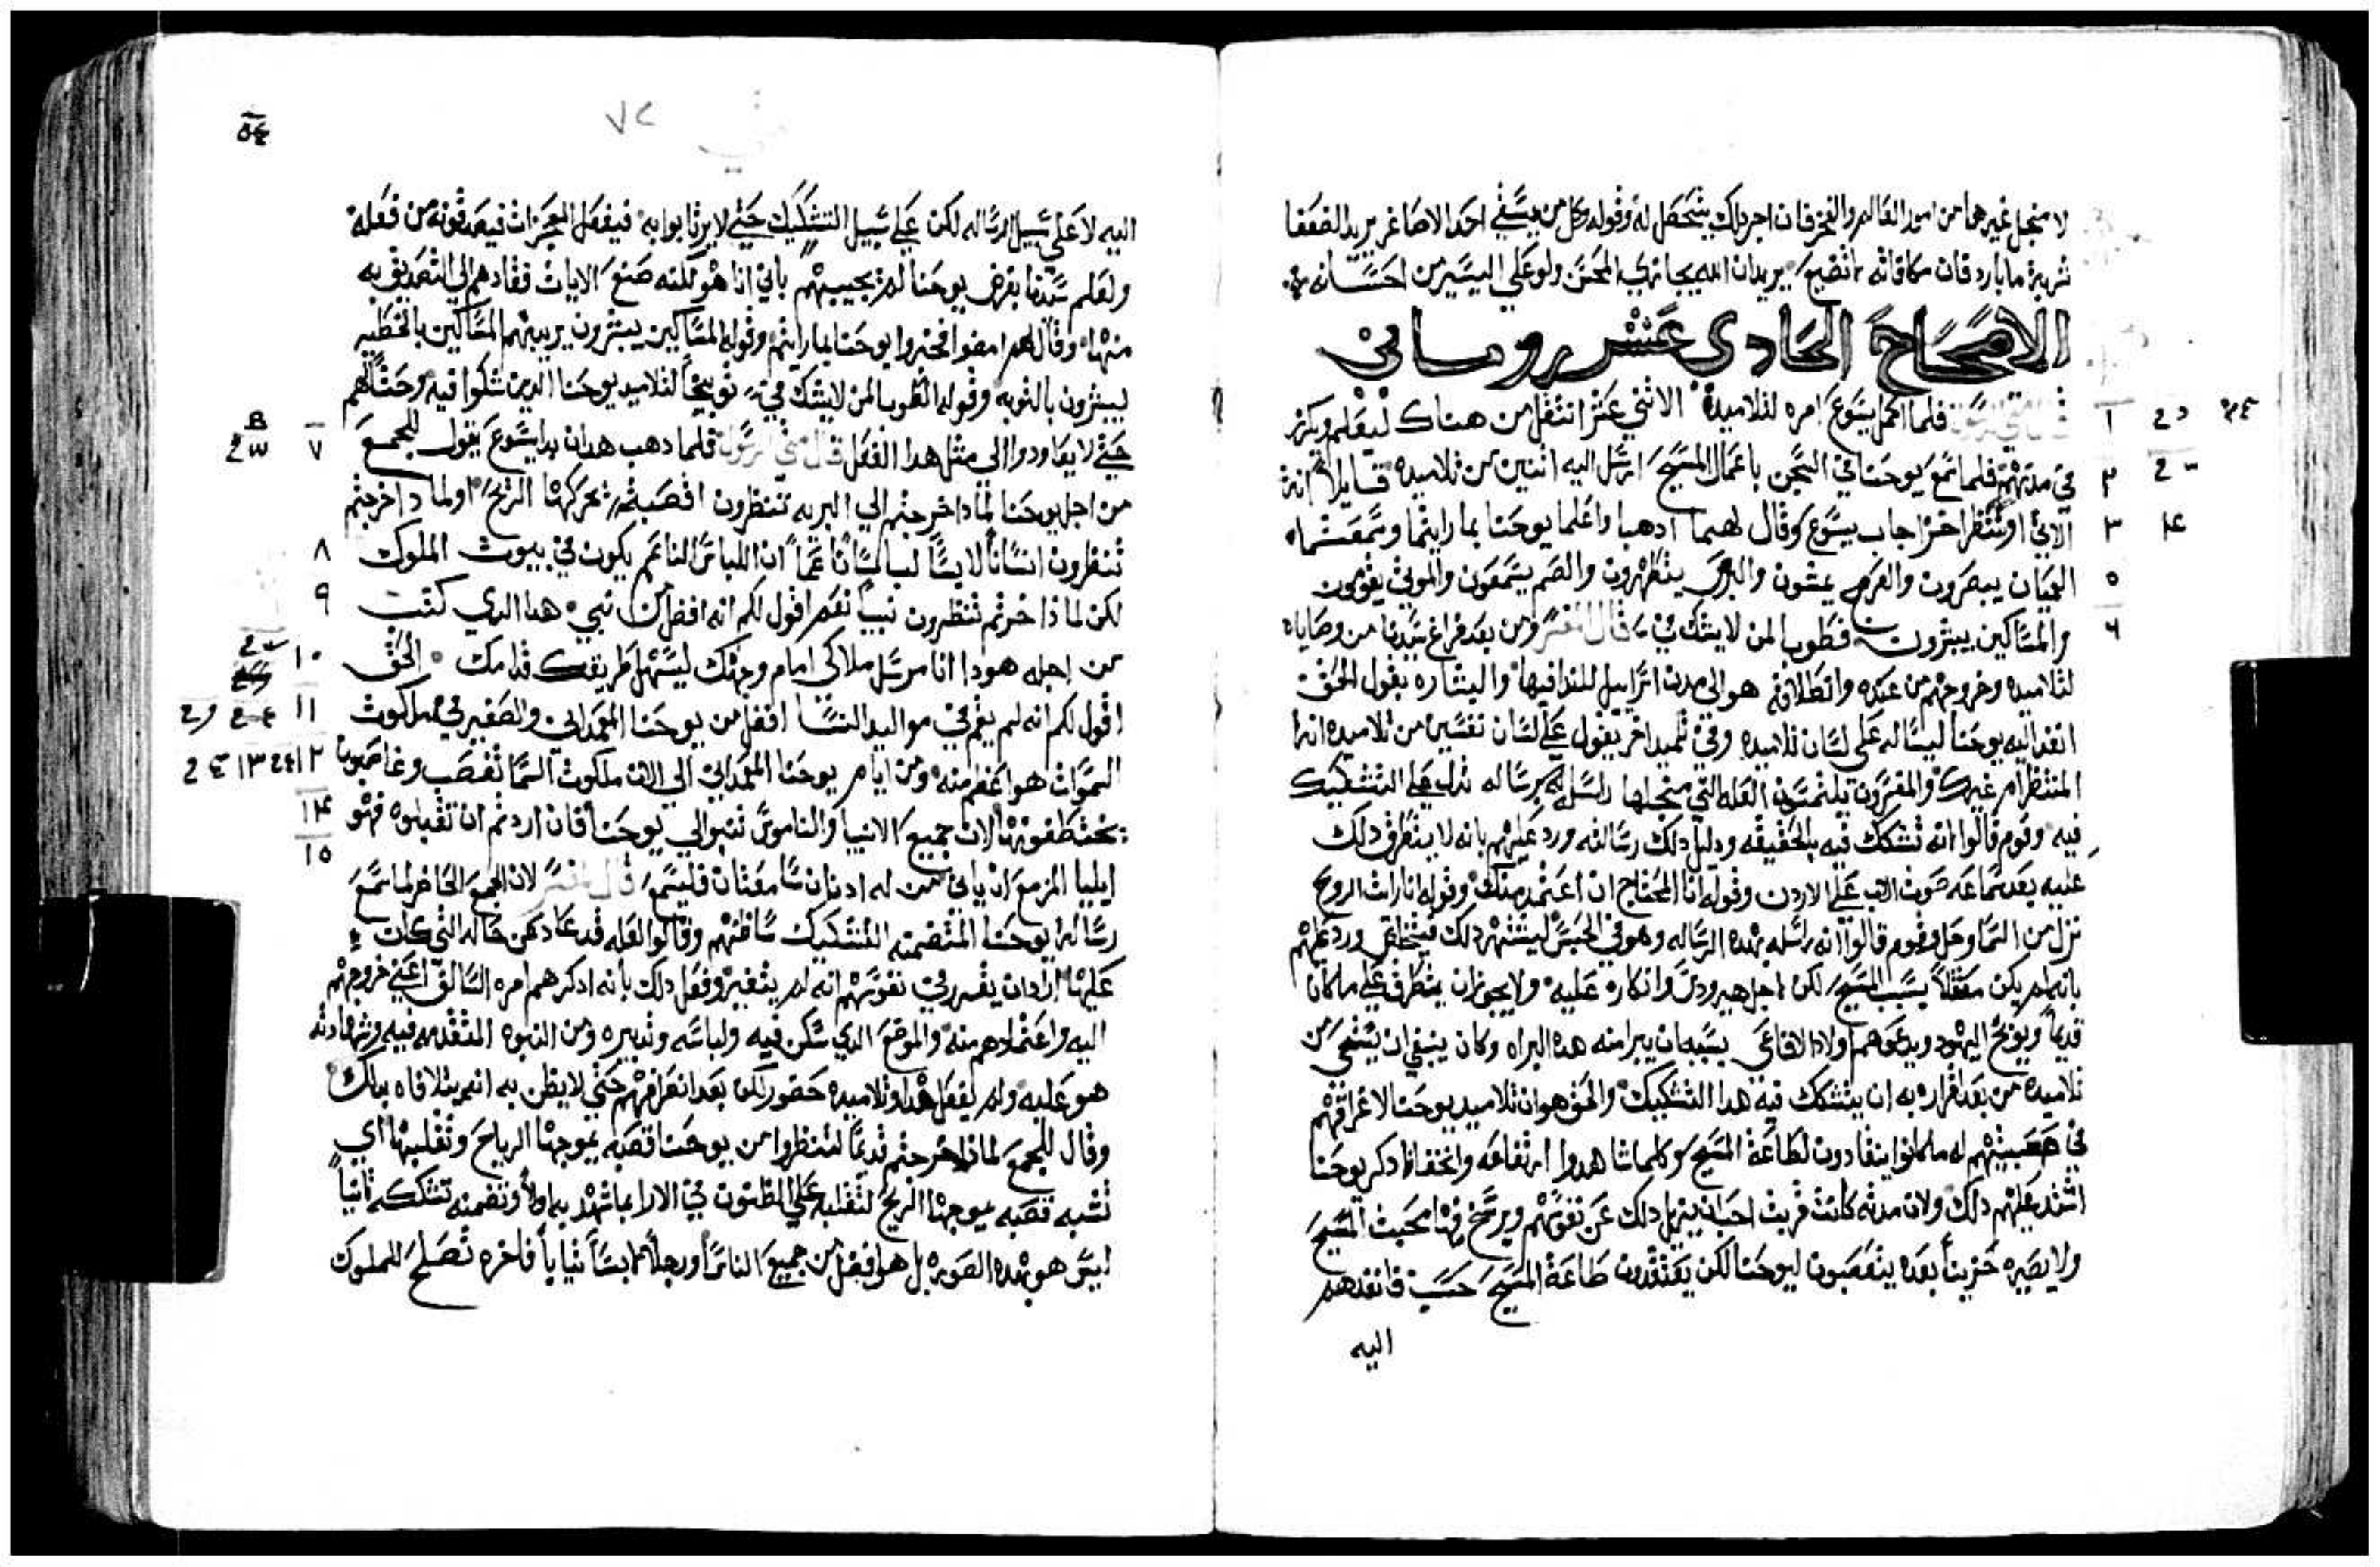 لا منجل غيرهما من امور العالم والفخر فان اجر ذلك يتحصل له وقوله وكل من يسقي احد الاصاغر يريد الضعفا
شربة ما بارد فان مكافاته ما تضيع يريد ان الله يجازي المحسن ولو على اليسير من احسانه
الاصحاح الحادي عشر روماني
٢٤ د ١ قال متي الرسول فلما اكمل يسوع امره لتلاميدة الاثني عشر انتقل من هناك ليعلم ويكرز
٢ في مدنهم فلما سمع يوحنا في السجن باعمال المسيح ارسل اليه اثنين من تلاميده قايلا انت
٣ ٤ الاتي او ننتظر اخر اجاب يسوع وقال لهما ادهبا واعلما يوحنا بما رايتما وسمعتما
٥ العميان يبصرون والعرج يمشون والبرص يتطهرون والصم يسمعون والموتي يقومون
٦ والمساكين يبشرون فطوبا لمن لا يشك في قال المفسر ومن بعد فراغ سيدنا من وصاياه
لتلاميده وخروجهم من عنده وانطلاقه هو الى مدن اسراييل للندا فيها والبشاره بقول الحق
انفد اليه يوحنا ليساله على لسان تلاميده وفي تلميد اخر يقول على لسان نفسين من تلاميده انت
المنتظر ام غيرك والمفسرون يلتمسون العله التي منجلها راسله برساله تدل على التشكيك
فيه وقوم قالوا انه تشكك فيه بالحقيقه ودليل دلك رسالته ورد عليهم بانه لا يتطرق دلك
عليه بعد سماعه صوت الاب على الاردن وقوله انا المحتاج ان اعتمد منك وقوله انا رات الروح
نزل من السما وحل وقوم قالوا انه راسله بهده الرساله وهو في الحبس ليشتهر دلك فيتخلص ورد عليهم
بانه لم يكن معتقلا بسبب المسيح لكن لاجل هيرودس وانكاره عليه ولا يجوز ان يتطرق على من كان
قديما ويوبخ اليهود ويدعوهم اولاد الافاعي بسببه ان يبرا منه هده البراه وكان ينبغي ان يستحي من
تلاميده من بعد اقراره به ان يتشكك فيه هدا التشكيك والحق هو ان تلاميد يوحنا لاغراقهم
في عصبيتهم له ما كانوا ينقادون لطاعة المسيح وكلما شاهدوا ارتفاعه وانخفاظ دكر يوحنا
اشتد عليهم دلك ولان مدته كانت قربت احب ان يزيل دلك عن نفوسهم ويرسخ فيها محبت المسيح
ولا يصيره حزبنا بعده يتعصبون ليوحنا لكن يعتقدون طاعة المسيح حسب فانفدهم
اليه
٥٤
٧٢
اليه لا على سبيل الرساله لكن على سبيل التشكيك حتي لا يرتابوا به فيفعل المعجزات فيصدقونه من فعله
ولعلم سيدنا بغرض يوحنا لم يجيبهم باني انا هو لكنه صنع الايات فقادهم الي التصديق به
منها وقال لهم امضوا فخبروا يوحنا بما رايتم وقوله المساكين يبشرون يريد بهم المساكين بالخطيه
يبشرون بالتوبه وقوله الطوبا لمن لا يشك في توبيخا لتلاميد يوحنا الدين شكوا فيه وحتا لهم
٧ حتي لا يعاودوا الي مثل هدا الفعل قال متي الرسول فلما دهب هدان بدا يسوع يقول للجمع
من اجل يوحنا لمادا خرجتم الي البريه تنظرون اقصبة تحركها الريح او لمادا خرجتم
٨ تنظرون انسانا لابسا لباسا ناعما ان اللباس الناعم يكون في بيوت الملوك
٩ لكن لما ذا خرجتم تنظرون نبيا نعم اقول لكم انه افضل من نبي هدا الدي كتبت
١٠ من اجله هودا انا مرسل ملاكي امام وجهك ليسهل طريقك قدامك الحق
١١ اقول لكم انه لم يقم في مواليد النسا افضل من يوحنا المعمداني والصغير في ملكوت
١٢ ١٣ السموات هو اعظم منه ومن ايام يوحنا المعمداني الي الان ملكوت السما تغصب وغاصبون
١٤ يختطفونها لان جميع الانبيا والناموس تنبوا الي يوحنا فان اردتم ان تقبلوه فهو
١٥ ايليا المزمع ان ياتي من له ادنان سامعتان فليسمع قال المفسر لان الجمع الحاضر لما سمع
رسالة يوحنا المتضمنه التشكيك سا ظنهم وقالوا لعله قد عاد عن حاله التي كان
عليها اراد ان يقرر في نفوسهم انه لم يتغير وفعل دلك بانه ادكرهم امره السالف اعني خروجهم
اليه واعتمادهم منه والموضع الدي سكن فيه ولباسه وتدبيره ومن النبوه المتقدمه فيه وشهادته
هو عليه ولم يفعل هدا وتلاميده حضور لكن بعد انصرافهم حتي لا يظن به انه يتلافاه بدلك
وقال للجمع لمادا خرجتم قديما لتنظروا من يوحنا قصبه تموجها الرياح وتقلبها اي
تشبه قصبه يموجها الريح لتقلبه على الظنون في الارا بما شهد به اولا وتضمنه تشككه ثانيا
ليس هو بهده الصوره بل هو افضل من جميع الناس او رجلا لابسا ثيابا فاخره تصلح للملوك